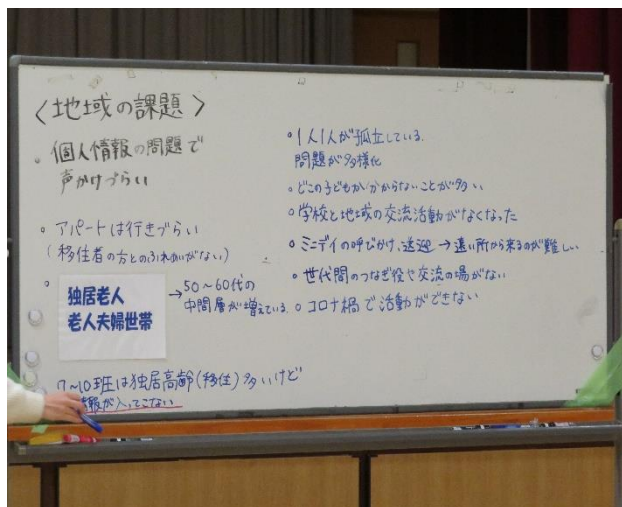 〈地域の課題〉
。個人情報の問題で
声かけづらい
。アパートは行きづらい
(移住者の方とのふれあいがない)
。独居老人
老人夫婦世帯
→50~60代の
中間層が増えている
7~10班は独居高齢(移住)多いけど
報が入ってこない
。1人1人が孤立している。
問題が多様化
。どこの子どもか分からないことが多い
。学校と地域の交流活動がなくなった
。ミニデイの呼びかけ、送迎→遠い所から来るのが難しい
。世代間のつなぎ役や交流の場がない
。コロナ禍で活動ができない